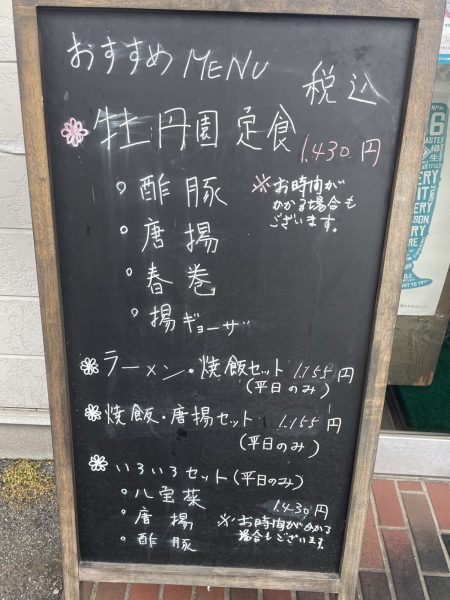 おすすめ MENU
税込
牡丹園 定食 1.430円
。酢豚
※お時間が
かかる場合も
ございます。
。唐揚
。春巻
。揚ギョーザ
ラーメン・焼飯セット 1.155円
(平日のみ)
焼飯・唐揚セット 1.155円
(平日のみ)
いろいろセット(平日のみ)
。八宝菜 1.430円
。唐揚 ※お時間がかかる
場合もございます
。酢豚